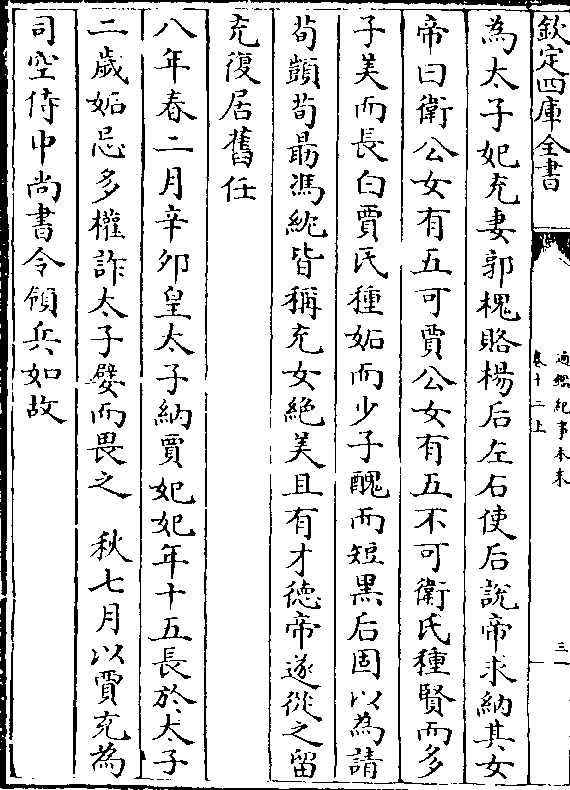 欽定四庫全書
通鑑紀事本末
卷十二上
三
為太子妃充妻郭槐賂楊后左右使后說帝求納其女
帝曰衛公女有五可賈公女有五不可衛氏種賢而多
子美而長白賈氏種妬而少子醜而短黑后固以為請
荀顗荀勗馮紞皆稱充女絶美且有才徳帝遂從之留
充復居舊任
八年春二月辛卯皇太子納賈妃妃年十五長於太子
二歲妬忌多權詐太子嬖而畏之　秋七月以賈充為
司空侍中尚書令領兵如故